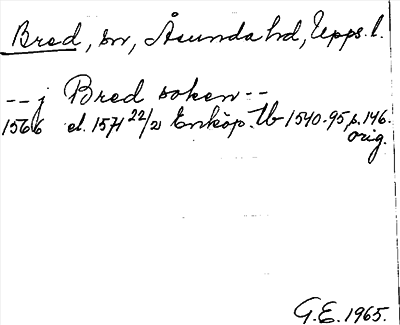 Bred, sn, Åsunda hd, Upps. l.
-- j Bred soken --
1566 el. 1571 22/2 Enköp. tb 1540-95 p. 146.
orig.
G.E. 1965.